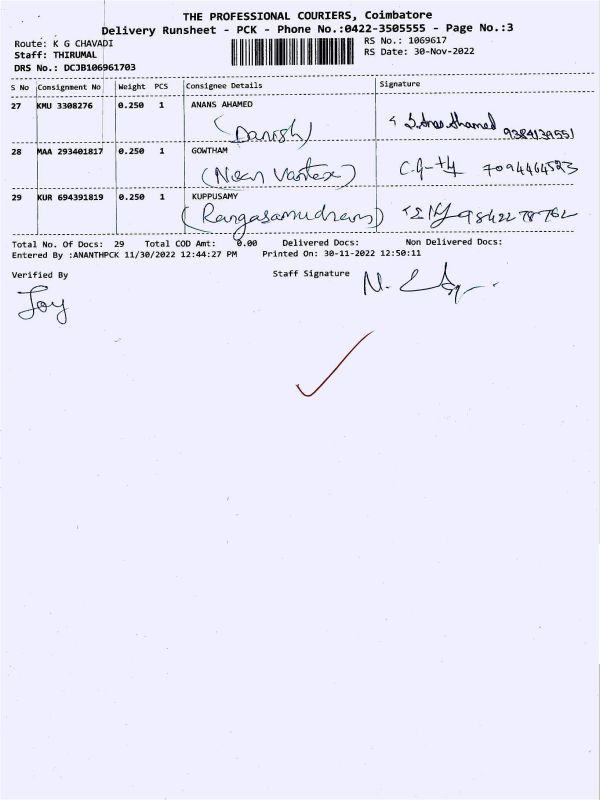 THE PROFESSIONAL COURIERS, Coimbatore
Delivery Runsheet - PCK - Phone No.:0422-3505555 - Page No.:3
Route: K G CHAVADI
Staff: THIRUMAL
DRS No.: DCJB106961703
RS No.: 1069617
RS Date: 30-Nov-2022
S No Consignment No Weight PCS Consignee Details Signature
27 KMU 3308276 0.250 1 ANANS AHAMED
(Danish) S.Anas Ahamed 9384139551
28 MAA 293401817 0.250 1 GOWTHAM
(Near Vantex) 7094464523
29 KUR 694391819 0.250 1 KUPPUSAMY
(Rangasamudram) 9842278762
Total No. Of Docs: 29 Total COD Amt: 0.00 Delivered Docs: Non Delivered Docs:
Entered By :ANANTHPCK 11/30/2022 12:44:27 PM Printed On: 30-11-2022 12:50:11
Verified By Staff Signature
Joy